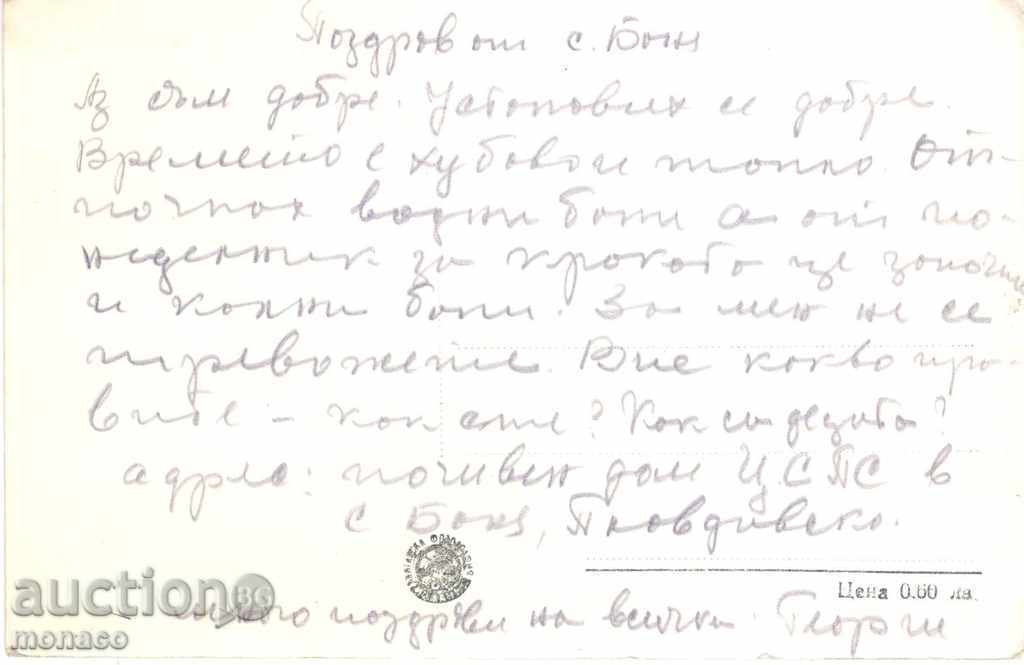 Поздрав от с. Баня
Аз съм добре. Установих се добре.
Времето е хубаво и топло. От-
почнах водни бани а от по-
неделник за кракото ще започна
и калні бани. За мен не се
тревожете. Вие какво пра-
вите – как сте? Как са децата?
адрес: почивен дом ЦСПС в
с Баня, Пловдивско.
Цена 0.60 лв.
много поздрави на всички Георги
auction BG
monaco